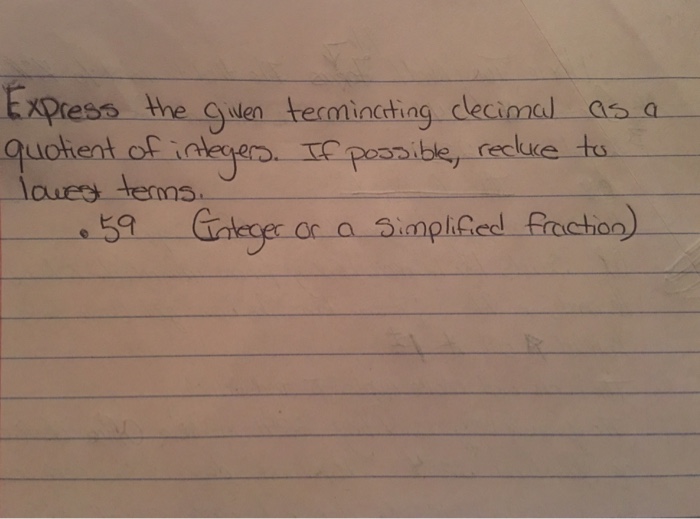 Express the given terminating decimal as a
quotient of integers. If possible, reduce to
lowest terms.
.59 (integer or a simplified fraction)